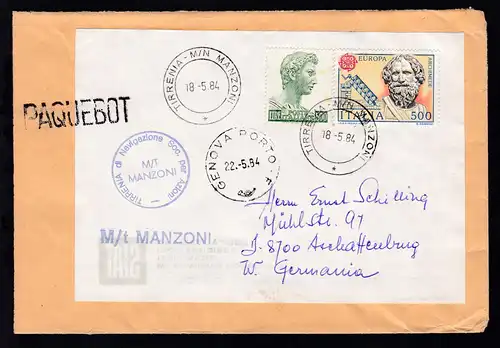 TIRRENIA - M/N MANZONI
18-5.84
EUROPA
ARCHIMEDE
ITALIA 500
TIRRENIA - M/N MANZONI
18-5.84
PAQUEBOT
GENOVA PORTO
22.-5.84
TIRRENIA di Navigazione Soc. per Azioni
M/T
MANZONI
M/t MANZONI
Herrn Ernst Schilling
Mühlstr. 97
D-8700 Aschaffenburg
W. Germania